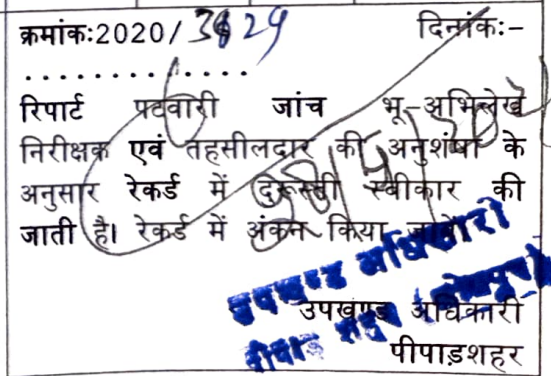 क्रमांक:2020/ 3829 दिनांक:–
. . . . . . . . . . . . .
रिपार्ट पटवारी जांच भू–अभिलेख
निरीक्षक एवं तहसीलदार की अनुशंषा के
अनुसार रेकर्ड में दुरूस्ती स्वीकार की
जाती है। रेकर्ड में अंकन किया जावें
उपखण्ड अधिकारी
उपखण्ड अधिकारी
पीपाड़शहर